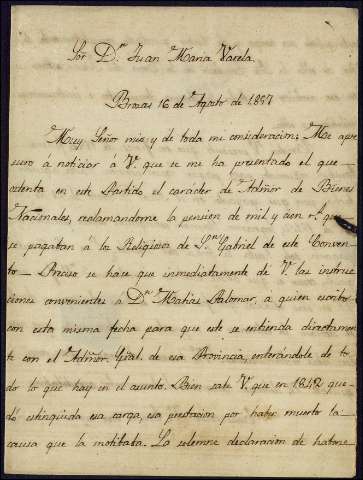 Sor Dn Juan Maria Varela.
Brozas 16 de Agosto de 1857
Muy Señor mio y de toda mi consideracion: Me apre
suro á noticiar á V. que se me ha presentado el que
ostenta en este Partido el carácter de Admor de Bienes
Nacionales, reclamandome la pension de mil y cien rs. que
se pagaban á la Religiosa de Sn Gabriel de este Conven
to_ Preciso se hace que inmediatamente de V. las instruc
ciones convenientes á Dn Matias Palomar, á quien escribo
con esta misma fecha para que este se entienda directamen
te con el Admor. Gral. de esa Provincia, enterándole de to
do lo que hay en el asunto. Bien sabe V. que en 1842 que
dó estinguida esa carga, esa prestacion por haber muerto la
causa que la motibaba. La solemne declaracion de haberse